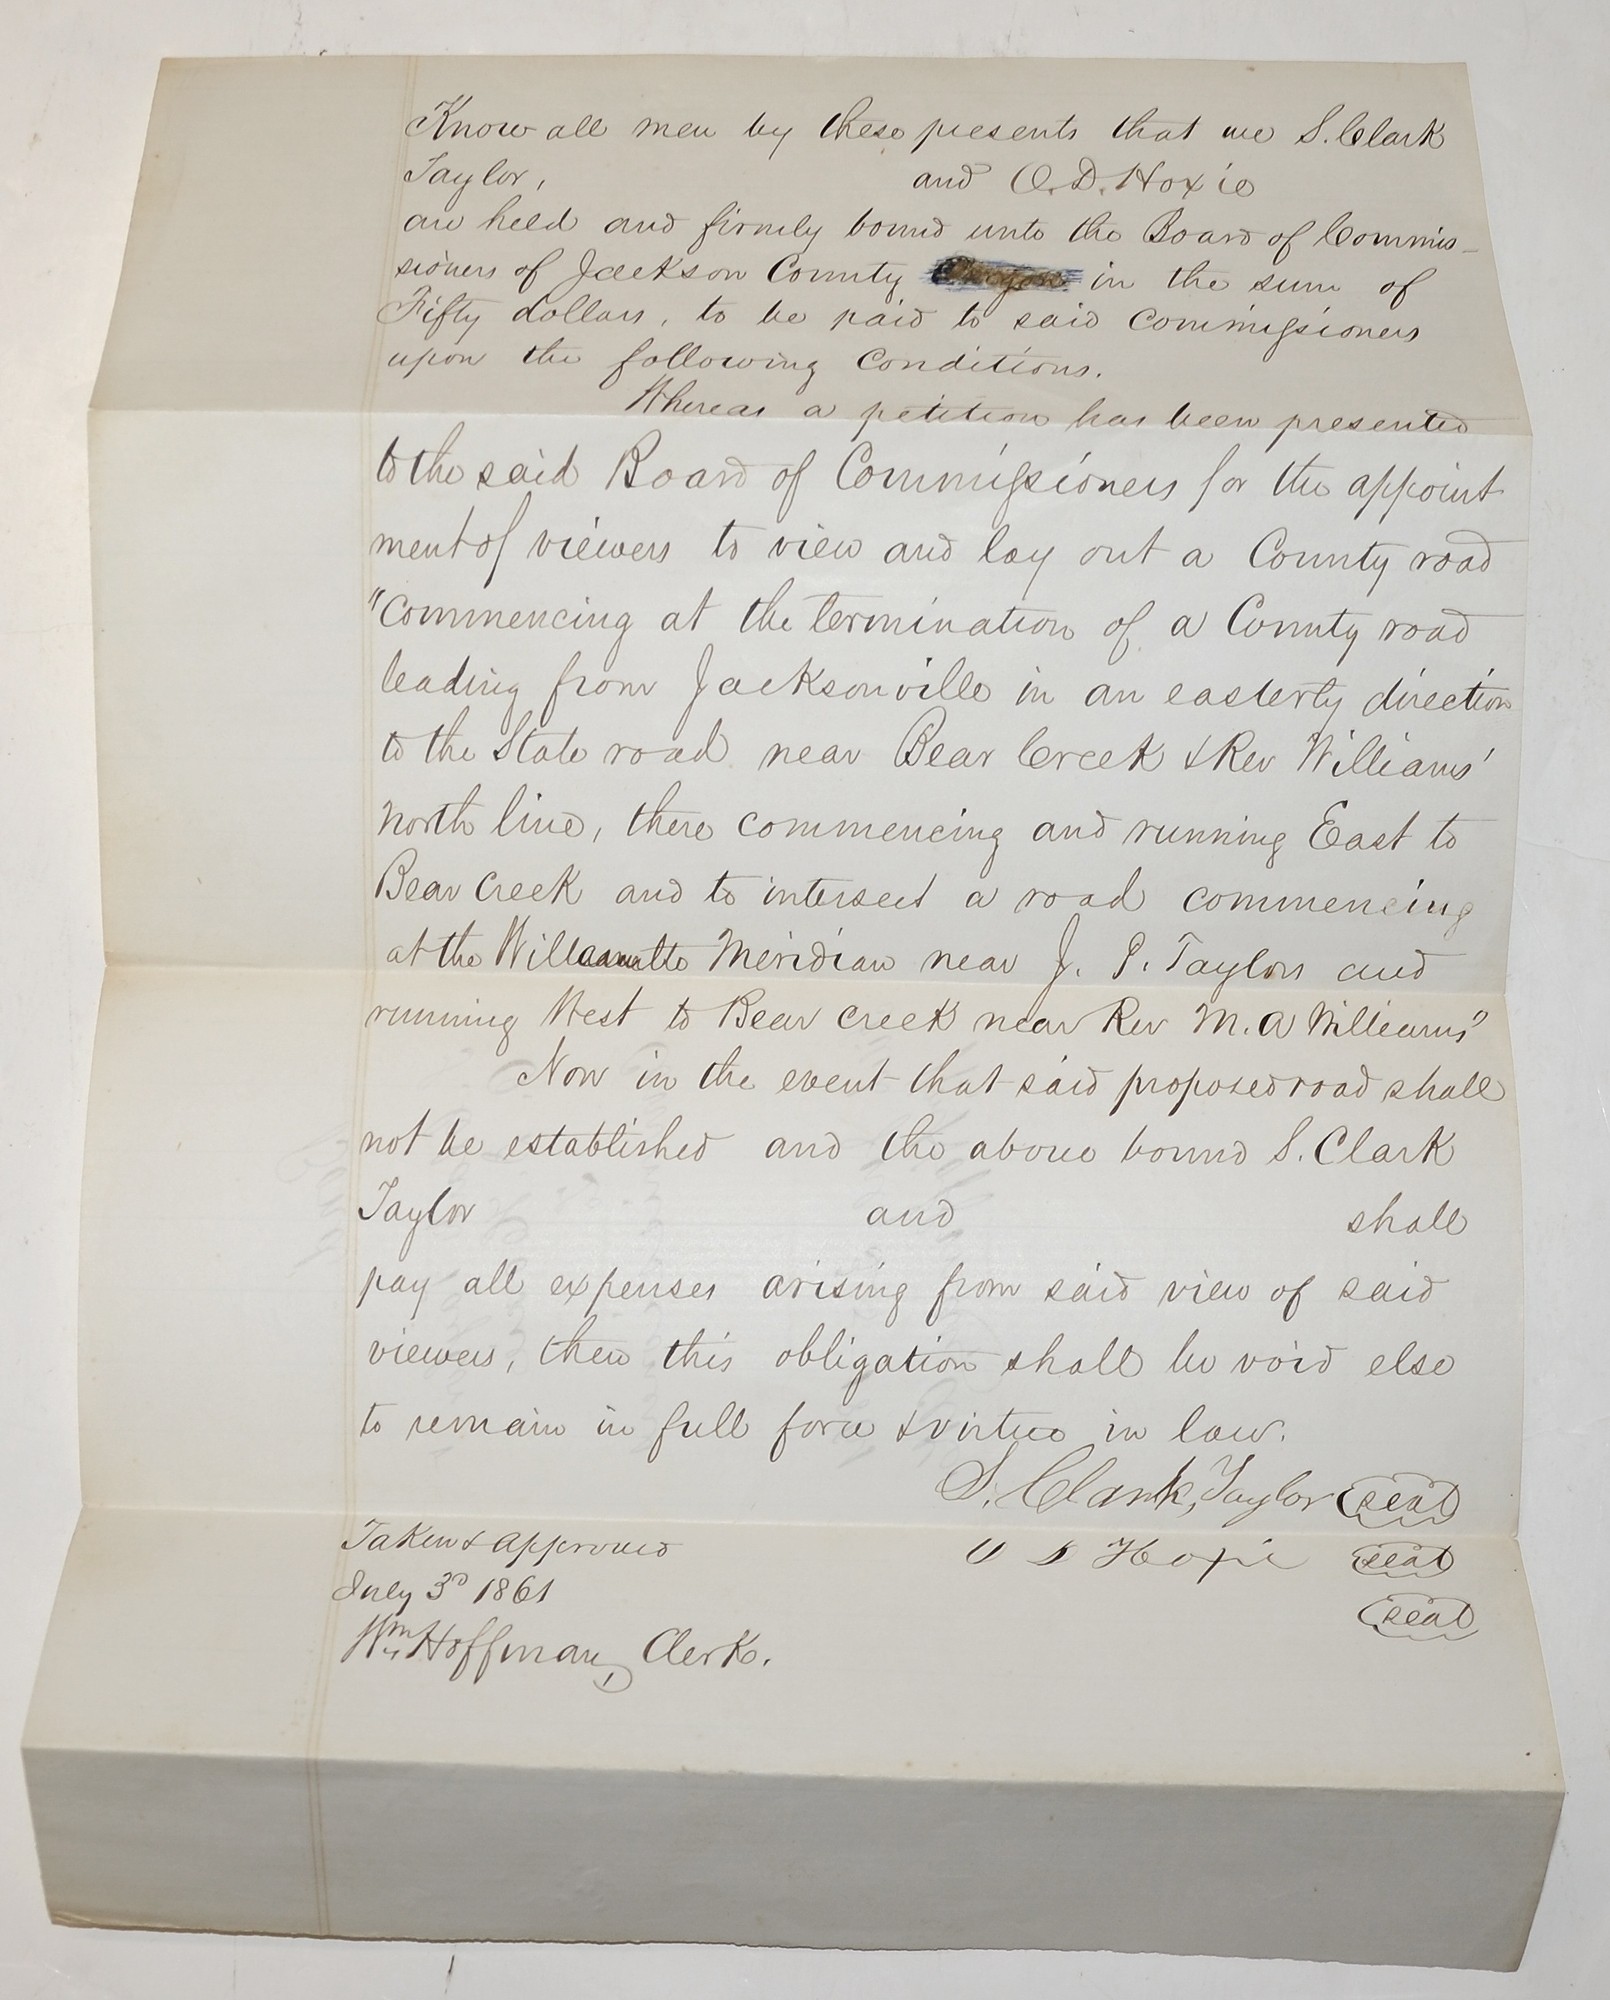 Know all men by these presents that we S. Clark
Taylor, and O. D. Hoxie
are held and firmly bound unto the Board of Commis-
sioners of Jackson County in the sum of
Fifty dollars, to be paid to said Commissioners
upon the following conditions.
Whereas a petition has been presented
to the said Board of Commissioners for the appoint
ment of viewers to view and lay out a County road
"commencing at the termination of a County road
leading from Jacksonville in an easterly direction
to the State road near Bear Creek & Rev Williams'
north line, there commencing and running East to
Bear Creek and to intersect a road commencing
at the Willamette Meridian near J. P. Taylors and
running West to Bear creek near Rev M. A Williams"
Now in the event that said proposed road shall
not be established and the above bound S. Clark
Taylor and shall
pay all expenses arising from said view of said
viewers, then this obligation shall be void else
to remain in full force & virtue in law.
S. Clark, Taylor seal
O D Hoxie seal
seal
Taken & approved
July 3d 1861
Wm Hoffman, Clerk.